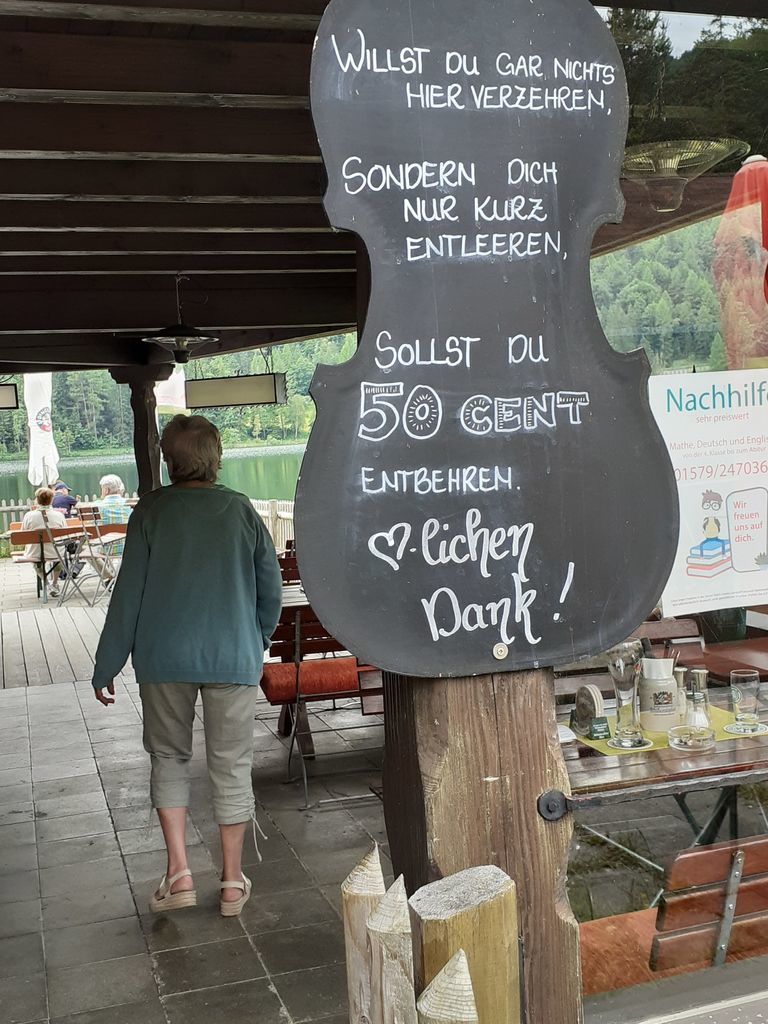 WILLST DU GAR NICHTS
HIER VERZEHREN,
SONDERN DICH
NUR KURZ
ENTLEEREN,
SOLLST DU
50 CENT
ENTBEHREN.
♡-lichen
Dank!
Nachhilfe
sehr preiswert
Mathe, Deutsch und Englis
von der 4. Klasse bis zum Abitur
01579/247036
Wir
freuen
uns auf
dich.